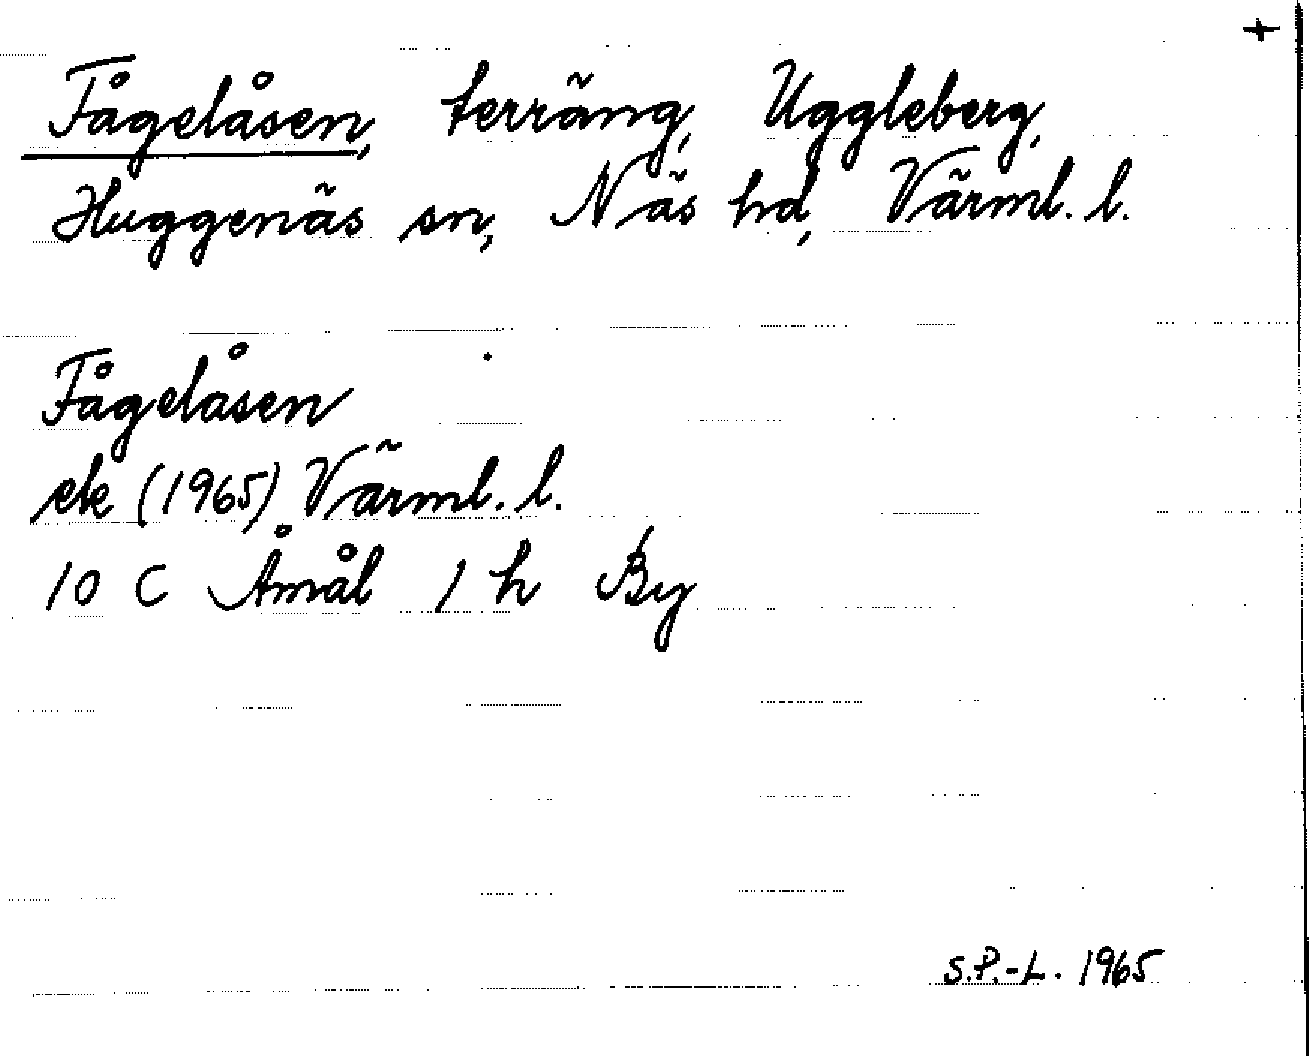 +
Fågelåsen, terräng, Uggleberg,
Huggenäs sn, Näs hd, Värml. l.
Fågelåsen
ek (1965) Värml. l.
10 C Åmål 1 h By
S.P.-L. 1965